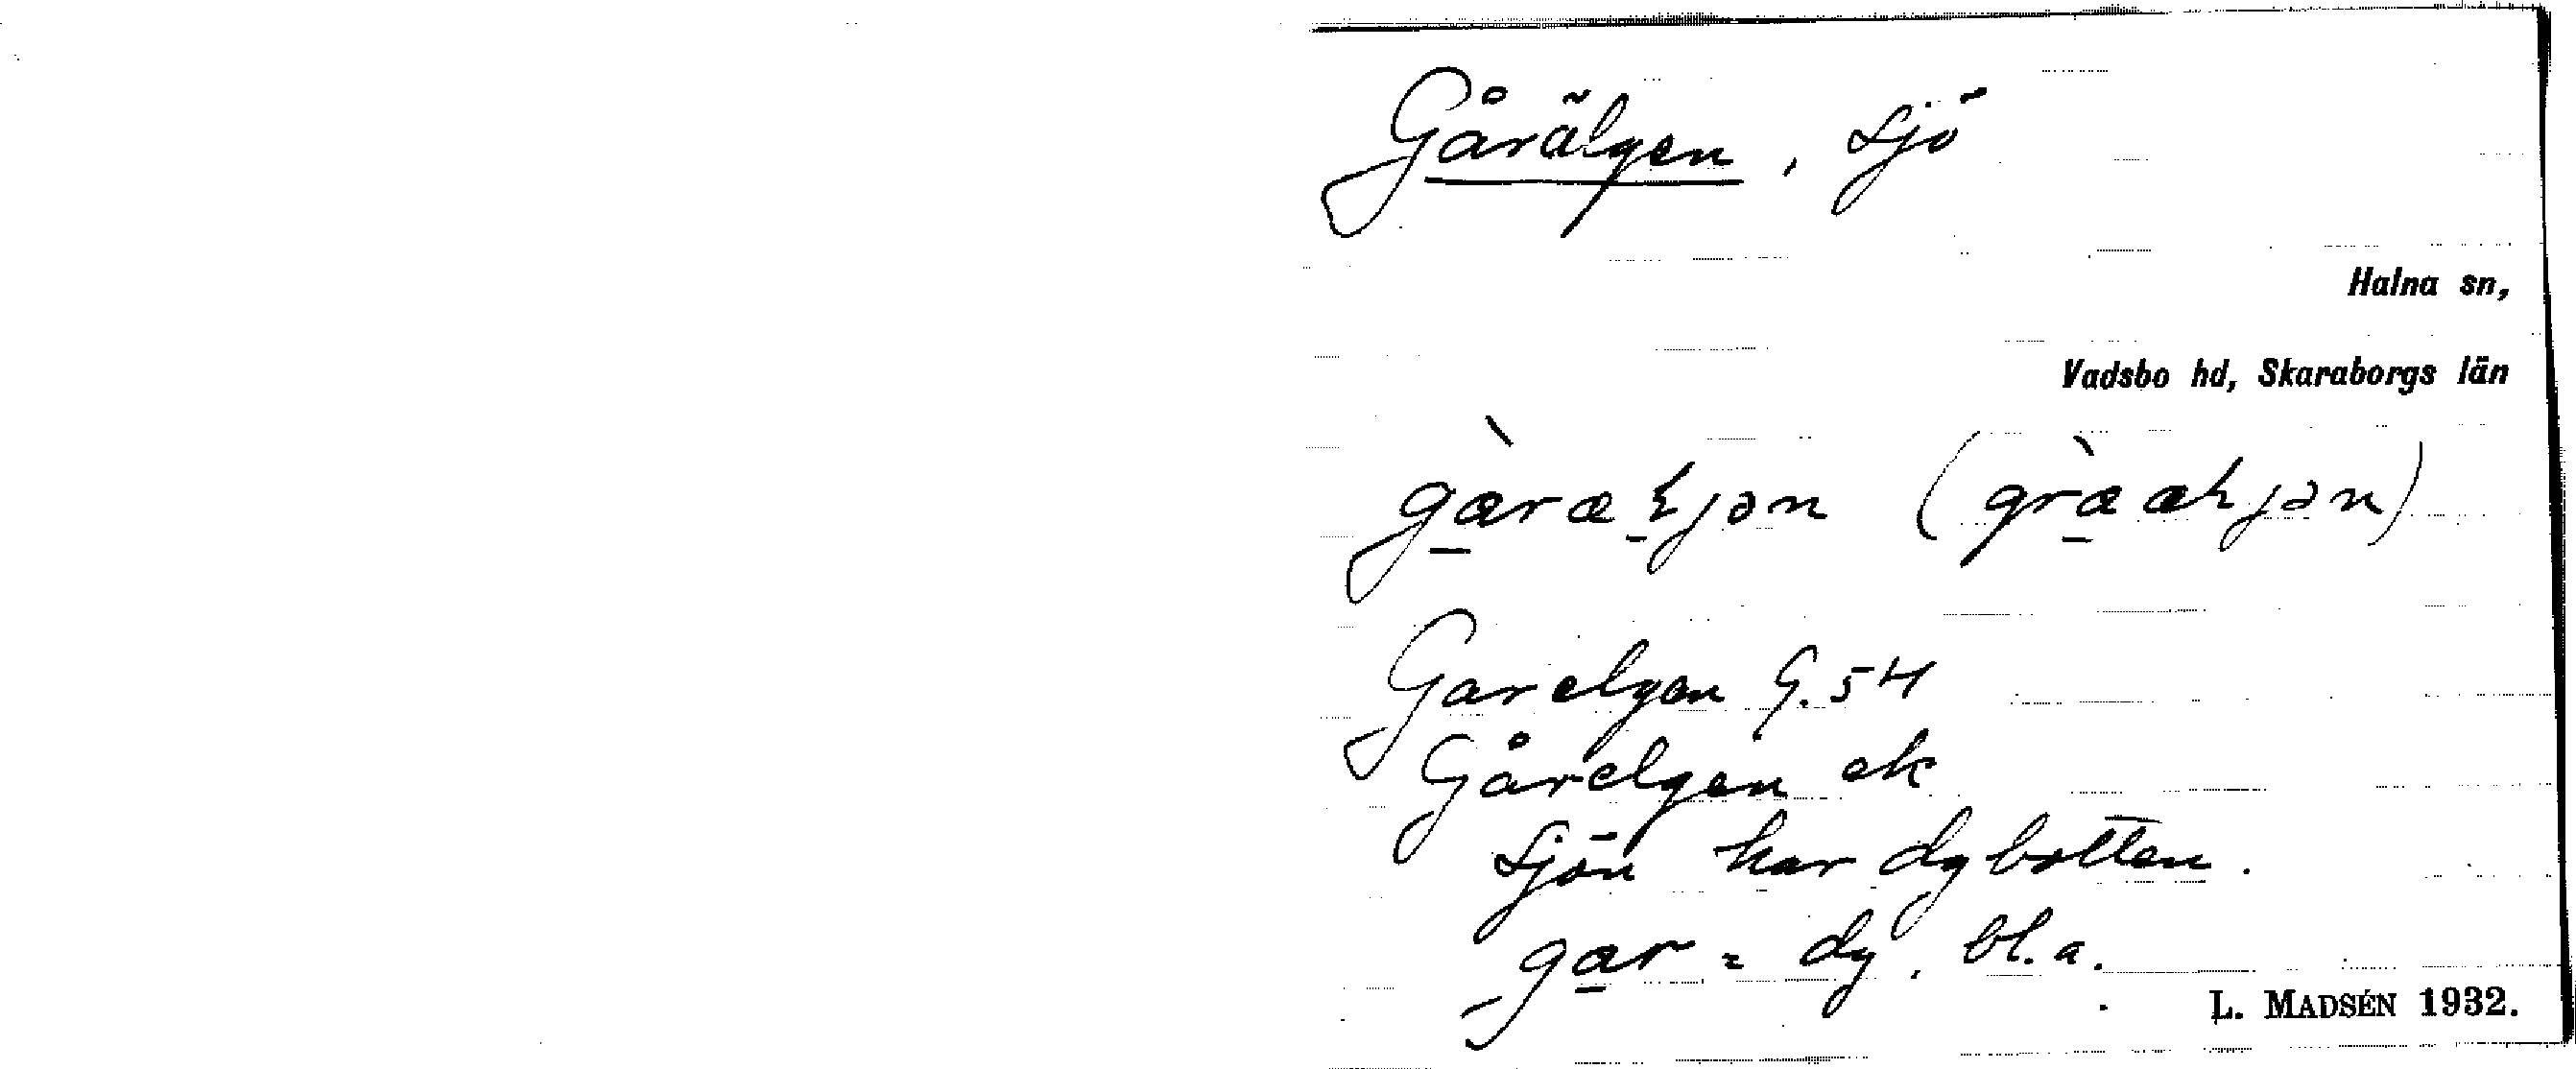 Gårälgen, sjö
Halna sn,
Vadsbo hd, Skaraborgs län
Garelgen G. 54
Gårelgen ek
Sjön har dybotten.
gar = dy, bl. a.
L. MADSÉN 1932.